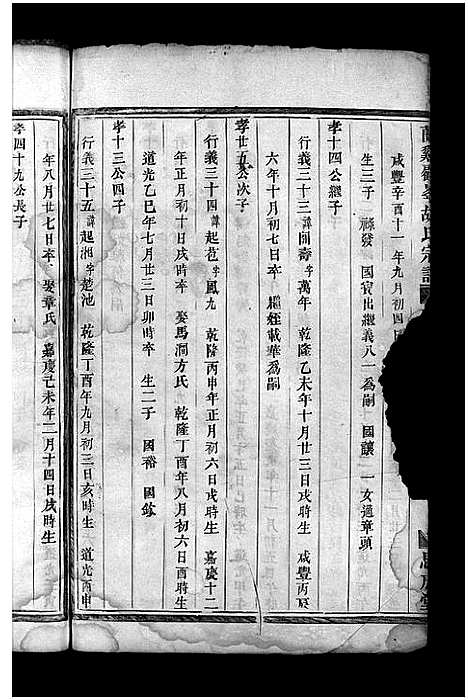 胡氏宗譜
咸豐辛酉十一年九月初四日
生三子 祿發 國賓出繼義八一爲嗣 國讓 一女適章頭
孝十四公繼子
行義三十三諱 字萬年 乾隆乙未年十月廿三日戌時生 咸豐丙辰
六年十月初七日卒 繼姪載華爲嗣
孝廿五公次子
行義三十四諱起苞字鳳九 乾隆丙申年正月初六日戌時生 嘉慶十二
年正月初十日戌時卒 娶馬澗方氏 乾隆丁酉年八月初六日酉時生
道光乙巳年七月廿三日卯時卒 生二子 國裕 國欽
孝十三公四子
行義三十五諱起湘字楚池 乾隆丁酉年九月初三日亥時生 道光丙申
年八月廿七日卒 娶章氏 嘉慶己未年二月十四日戌時生
孝四十九公長子